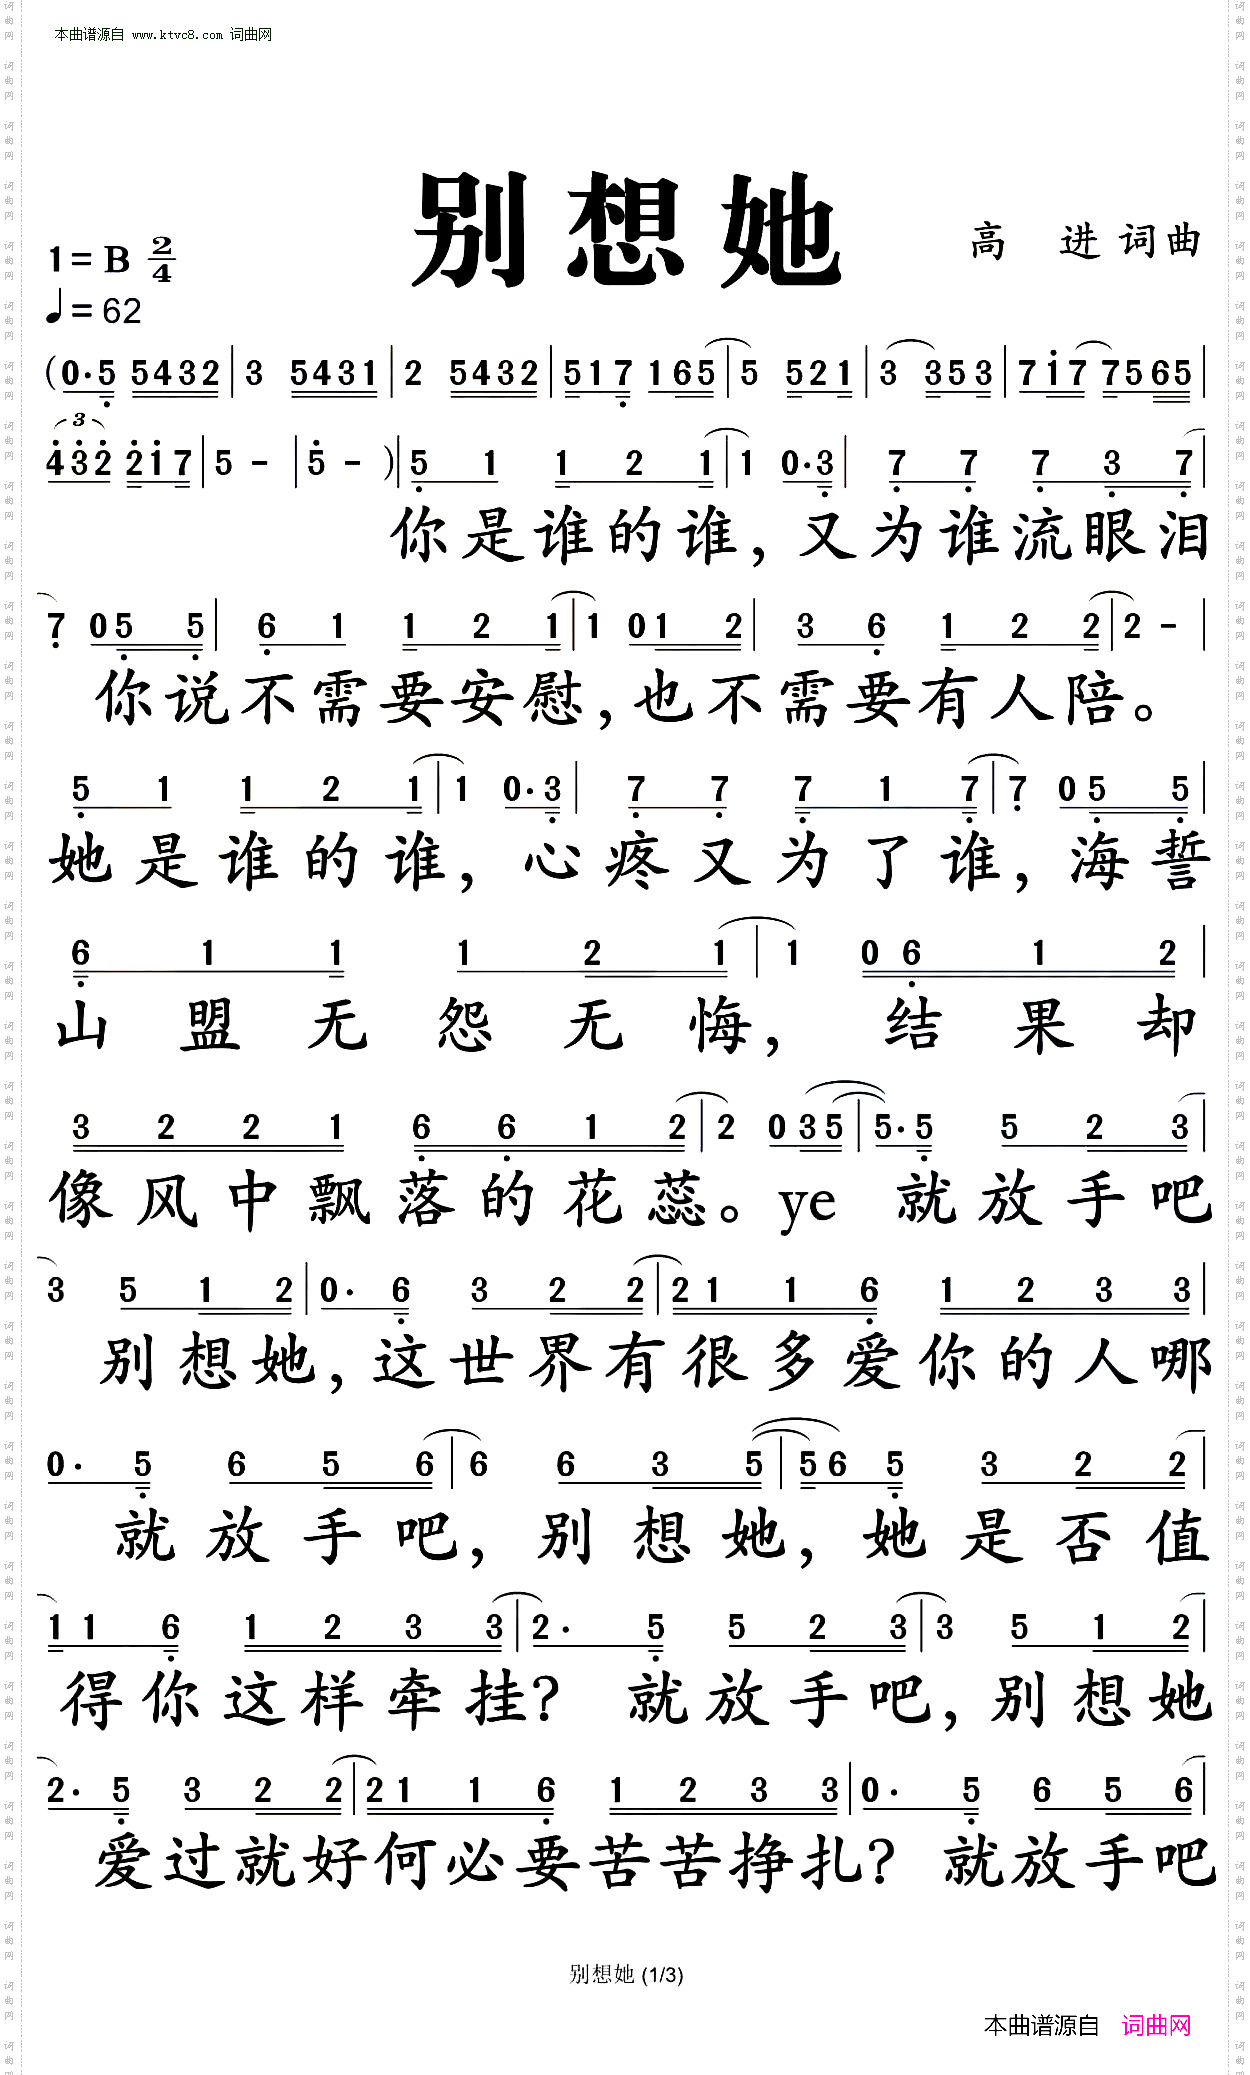 本曲谱源自 www.ktvc8.com 词曲网
别想她
高 进 词曲
1= B 2/4
♩= 62
(0·5 5432|3 5431|2 5432|517 165|5 521|3 353|7i7 7565|
3
432 2i7|5 -|5 -)|5 1 1 2 1|1 0·3|7 7 7 3 7|
你是谁的谁,又为谁流眼泪
7 05 5|6 1 1 2 1|1 01 2|3 6 1 2 2|2 -|
你说不需要安慰,也不需要有人陪。
5 1 1 2 1|1 0·3|7 7 7 1 7|7 05 5|
她是谁的谁,心疼又为了谁,海誓
6 1 1 1 2 1|1 06 1 2|
山盟无怨无悔,结果却
3 2 2 1 6 6 1 2|2 035|5·5 5 2 3|
像风中飘落的花蕊。ye 就放手吧
3 5 1 2|0· 6 3 2 2|21 1 6 1 2 3 3|
别想她,这世界有很多爱你的人哪
0· 5 6 5 6|6 6 3 5|56 5 3 2 2|
就放手吧,别想她,她是否值
11 6 1 2 3 3|2· 5 5 2 3|3 5 1 2|
得你这样牵挂?就放手吧,别想她
2· 5 3 2 2|21 1 6 1 2 3 3|0· 5 6 5 6|
爱过就好何必要苦苦挣扎?就放手吧
别想她 (1/3)
本曲谱源自 词曲网